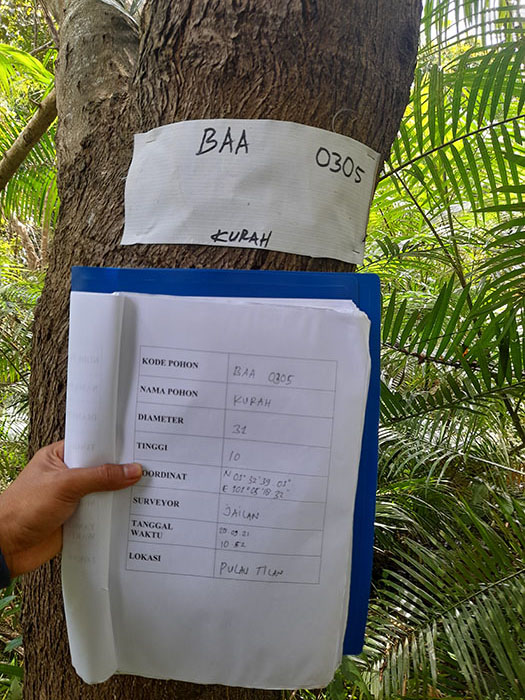 BAA
0305
KURAH
KODE POHON BAA 0305
NAMA POHON KURAH
DIAMETER 31
TINGGI 10
OORDINAT N 01° 32' 39. 03"
E 101° 05' 18 32"
SURVEYOR JAILAN
TANGGAL 20 09 21
WAKTU 10 52
LOKASI PULAU TILAN